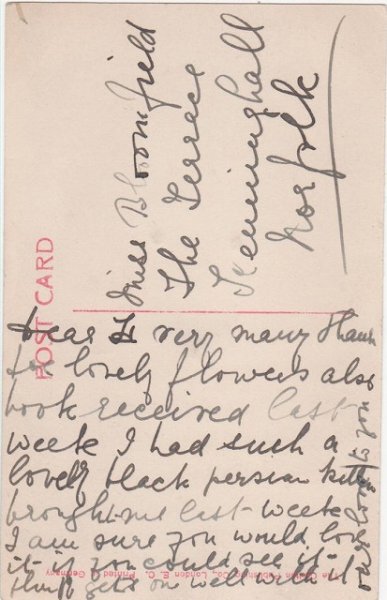 POST CARD
Miss Bloomfield
The Terrace
Kenninghall
Norfolk
Dear very many thanks
for lovely flowers also
book received last
week I had such a
lovely black persian kitten
brought me last week
I am sure you would love
it if you could see it
gets on well with
our love to you
Publishing Co., London E. C. Printed Germany